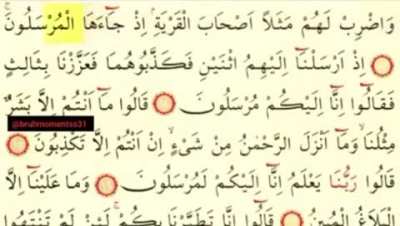 وَاضْرِبْ لَهُمْ مَثَلًا اَصْحَابَ الْقَرْيَةِۢ اِذْ جَٓاءَهَا الْمُرْسَلُونَۚ
اِذْ اَرْسَلْنَٓا اِلَيْهِمُ اثْنَيْنِ فَكَذَّبُوهُمَا فَعَزَّزْنَا بِثَالِثٍ
فَقَالُٓوا اِنَّٓا اِلَيْكُمْ مُرْسَلُونَ قَالُوا مَٓا اَنْتُمْ اِلَّا بَشَرٌ
@bruhmomentss31
مِثْلُنَاۙ وَمَٓا اَنْزَلَ الرَّحْمٰنُ مِنْ شَيْءٍۙ اِنْ اَنْتُمْ اِلَّا تَكْذِبُونَ
قَالُوا رَبُّنَا يَعْلَمُ اِنَّٓا اِلَيْكُمْ لَمُرْسَلُونَ وَمَا عَلَيْنَٓا اِلَّا
الْبَلَاغُ الْمُبِينُ قَالُٓوا اِنَّا تَطَيَّرْنَا بِكُمْۚ لَئِنْ لَمْ تَنْتَهُوا